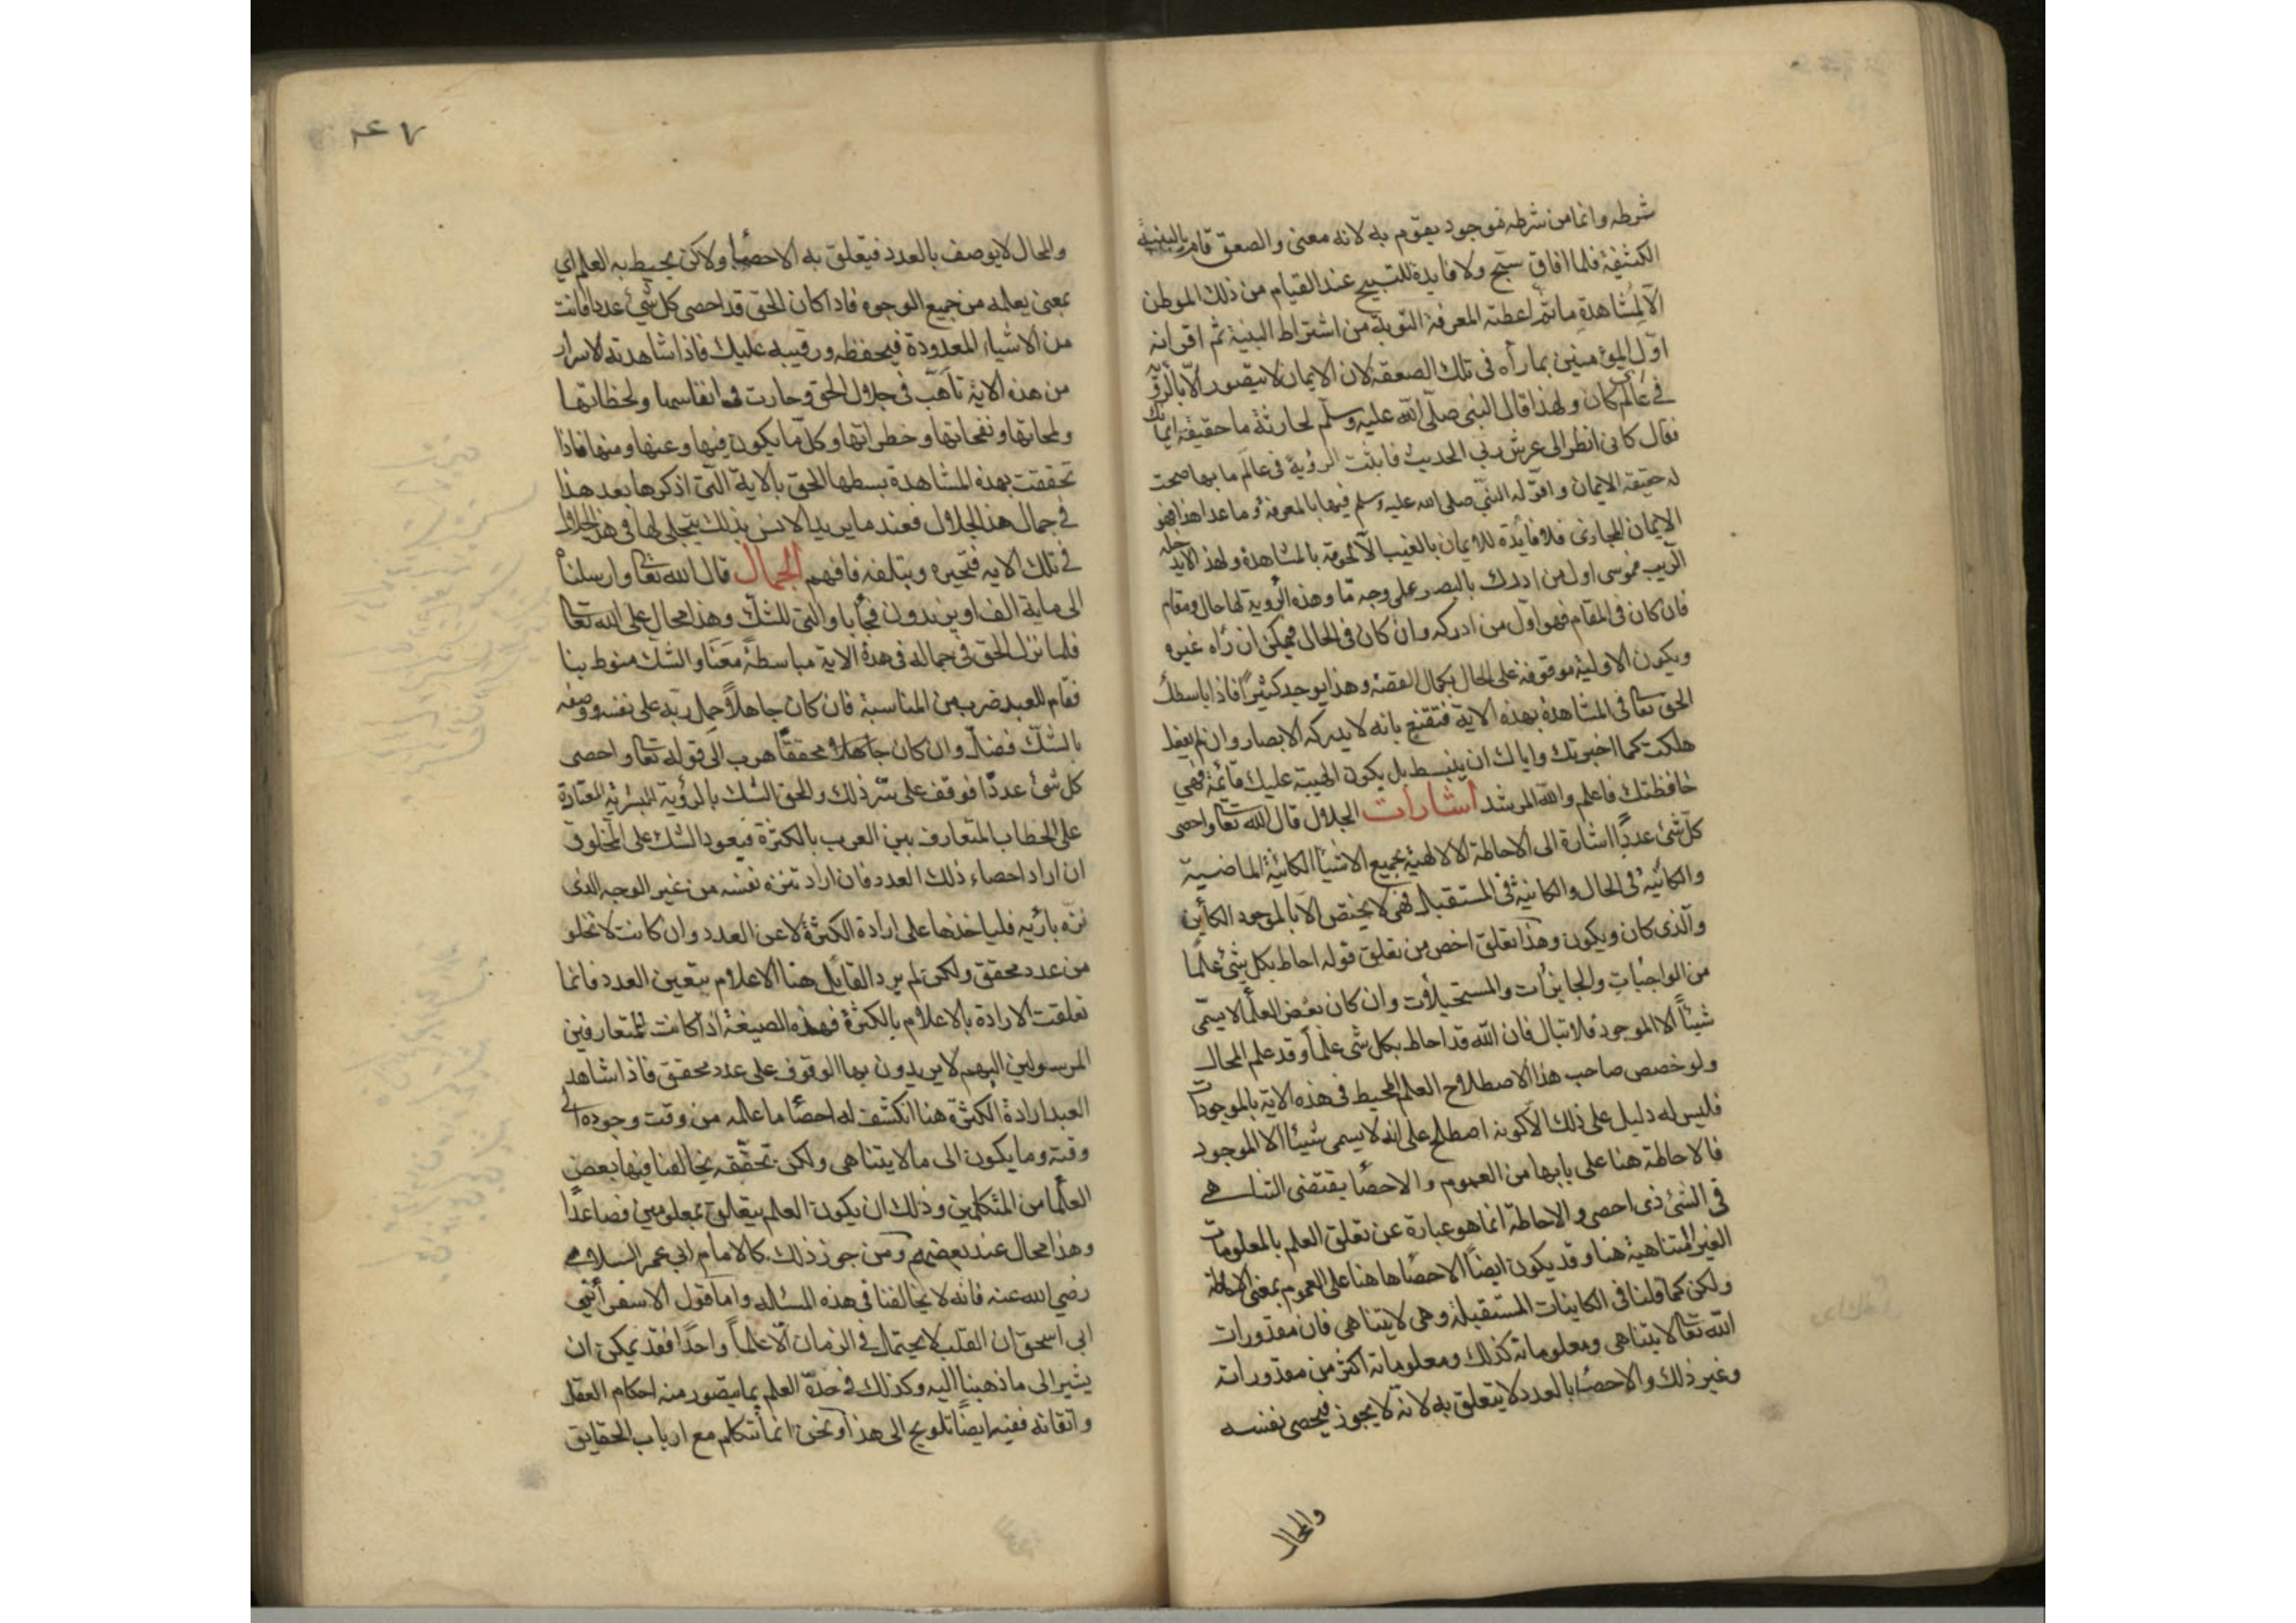 شرطه وانما من شرطه موجود يقوم به لانه معنى والصعق قام بالبنية
الكثيفة فلما افاق سبح ولا فايدة للتسبيح عند القيام من ذلك الموطن
الا لمشاهدة ما ثم اعطته المعرفة التوبة من اشتراط البنية ثم اقر انه
اول المؤمنين بما رآه في تلك الصعقة لان الايمان لا يتصور الا بالرؤية
في عالم كان ولهذا قال النبي صلى الله عليه وسلم لحارثة ما حقيقة ايمانك
فقال كاني انظر الى عرش ربي الحديث فاثبت الرؤية في عالم ما بها صحت
له حقيقة الايمان واقر له النبي صلى الله عليه وسلم فيها بالمعرفة وما عدا هذا فهو
الايمان المجازي فلا فايدة للايمان بالغيب الا لحوقه بالمشاهدة ولهذا لا يدخله
الريب فموسى اول من ادرك بالبصر على وجه ما وهذه الرؤية لها حال ومقام
فان كان في المقام فهو اول من ادركه وان كان في الحال فيمكن ان رآه غيره
ويكون الاولية موقوفة على الحال بكمال القصة وهذا يوجد كثيرا فاذا باسطك
الحق تعالى في المشاهدة بهذه الاية فتقنع بانه لا يدركه الابصار وان لم يفعل
هلكت كما اخبرتك واياك ان ينبسط بل يكون الهيبة عليك قائمة فهي
حافظتك فاعلم والله المرشد اشارات الجلال قال الله تعالى واحصى
كل شئ عددا اشارة الى الاحاطة الالهية بجميع الاشيا الكائنة الماضية
والكائنة في الحال والكائنة في المستقبل فهي لا يختص الا بالموجود الكأين
والذي كان ويكون وهذا تعلق اخص من تعلق قوله احاط بكل شئ علما
من الواجبات والجايزات والمستحيلات وان كان بعض العلما لا يسمى
شيئا الا الموجود فلا تبال فان الله قد احاط بكل شئ علما وقد علم المحال
ولو خصص صاحب هذا الاصطلاح العلم المحيط في هذه الاية بالموجودات
فليس له دليل على ذلك الا كونه اصطلح على انه لا يسمى شيئا الا الموجود
فالاحاطة هنا على بابها من العموم والاحصا يقتضى التناهي
في الشئ ذي احصى والاحاطة انما هو عبارة عن تعلق العلم بالمعلومات
الغير المتناهية هنا وقد يكون ايضا الاحصا هاهنا على العموم بمعنى الاحاطة
ولكن كما قلنا في الكاينات المستقبلة وهي لا يتناهى فان مقدورات
الله تعالى لا يتناهى ومعلوماته كذلك ومعلوماته اكثر من مقدوراته
وغير ذلك والاحصا بالعدد لا يتعلق به لانه لا يجوز فيحصى نفسه
والمحال
والمحال لا يوصف بالعدد فيتعلق به الاحصا ولاكن يحيط به العلم اي
بمعنى يعلمه من جميع الوجوه فاذا كان الحق قد احصى كل شئ عددا فانت
من الاشياء المعدودة فيحفظه ورقيبه عليك فاذا شاهدته الاسرار
من هذه الاية تاهت في جلال الحق وحارت في انفاسها ولحظاتها
ولمحاتها ونفحاتها وخطراتها وكل ما يكون فيها وعنها ومنها فاذا
تحققت بهذه المشاهدة بسطها الحق بالاية التي اذكرها بعد هذا
في جمال هذا الجلال فعند ما يريد الانس بذلك يتجلى لها في هذا الجلال
في تلك الاية فتحيره ويتلفه فافهم الجمال قال الله تعالى وارسلناه
الى ماية الف او يزيدون فجا باو التي للشك وهذا محال على الله تعالى
فلما نزل الحق في جماله في هذه الاية مباسطة معنا والشك منوط بنا
فقام للعبد ضرب من المناسبة فان كان جاهلا حمل ربه على نفسه ووصفه
بالشك فضل وان كان جاهلا محققا هرب الى قوله تعالى واحصى
كل شئ عددا فوقف على سر ذلك والحق الشك بالرؤية البشرية المعتادة
على الخطاب المتعارف بين العرب بالكثرة فيعود الشك على المخلوق
ان اراد احصاء ذلك العدد فان اراد تنزه نفسه من غير الوجه الذى
نزه بارئه فلياخذها على ارادة الكثرة لا عن العدد وان كانت لا تخلو
من عدد محقق ولكن لم يرد القائل هنا الاعلام بتعين العدد فانما
تعلقت الارادة بالاعلام بالكثرة فهذه الصيغة اذا كانت للمتعارفين
المرسولين اليهم لا يريدون بها الوقوف على عدد محقق فاذا شاهد
العبد ارادة الكثرة هنا انكشف له احصا ما علمه من وقت وجوده الى
وقته وما يكون الى ما لا يتناهى ولكن تحققه يخالفنا فيها بعض
العلما من المتكلمين وذلك ان يكون العلم يتعلق بمعلومين فصاعدا
وهذا محال عند بعضهم ومن جوز ذلك كالامام ابي عمر السلامي
رضي الله عنه فانه لا يخالفنا في هذه المسئاله واما قول الاسفرائني
ابى اسحق ان القلب لا يحتمل في الزمان الا علما واحدا فقد يمكن ان
يشير الى ما ذهبنا اليه وكذلك في حده العلم بما يتصور منه احكام العقل
واتقانه ففيه ايضا تلويح الى هذا ونحن انما نتكلم مع ارباب الحقايق